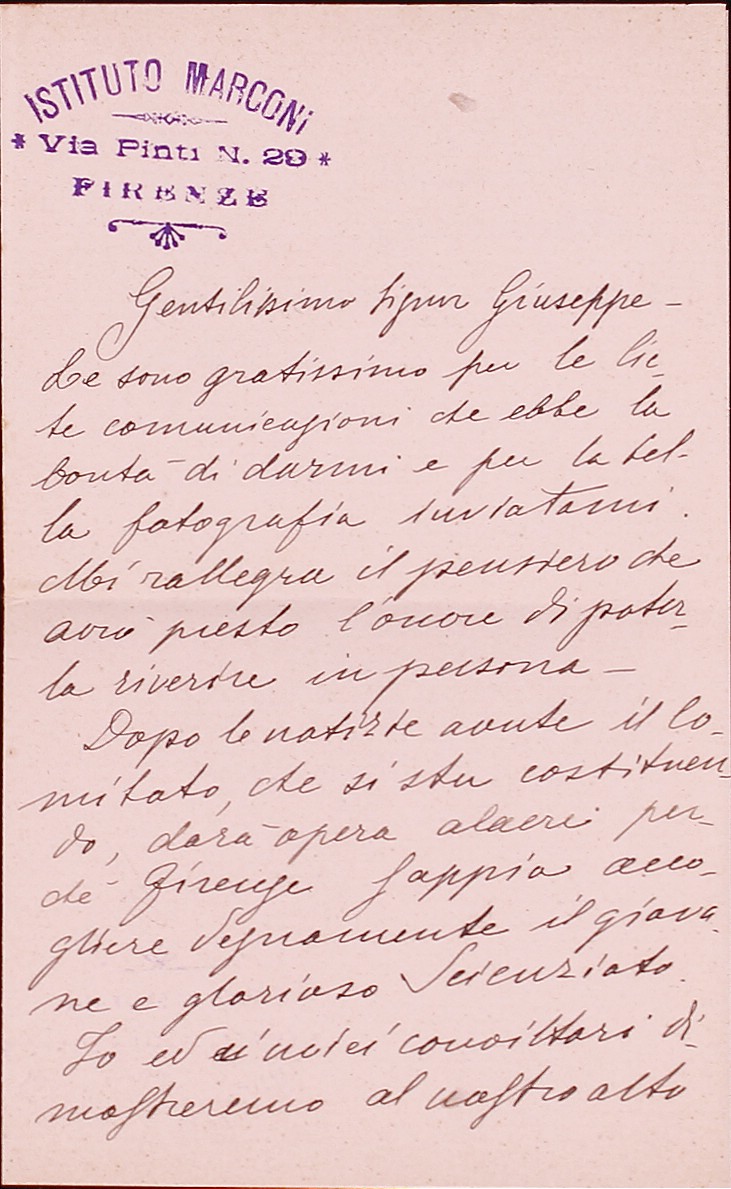 ISTITUTO MARCONI
* Via Pinti N. 29 *
FIRENZE
Gentilissimo Signor Giuseppe –
Le sono gratissimo per le lie-
te comunicazioni che ebbe la
bontà di darmi e per la bel-
la fotografia inviatami.
Mi rallegra il pensiero che
avrò presto l'onore di poter-
la riverire in persona –
Dopo le notizie avute il Co-
mitato, che si sta costituen-
do, darà opera alacre per-
chè Firenze sappia acco-
gliere degnamente il giova-
ne e glorioso Scienziato.
Io ed i miei convittori di-
mostreremo al nostro alto